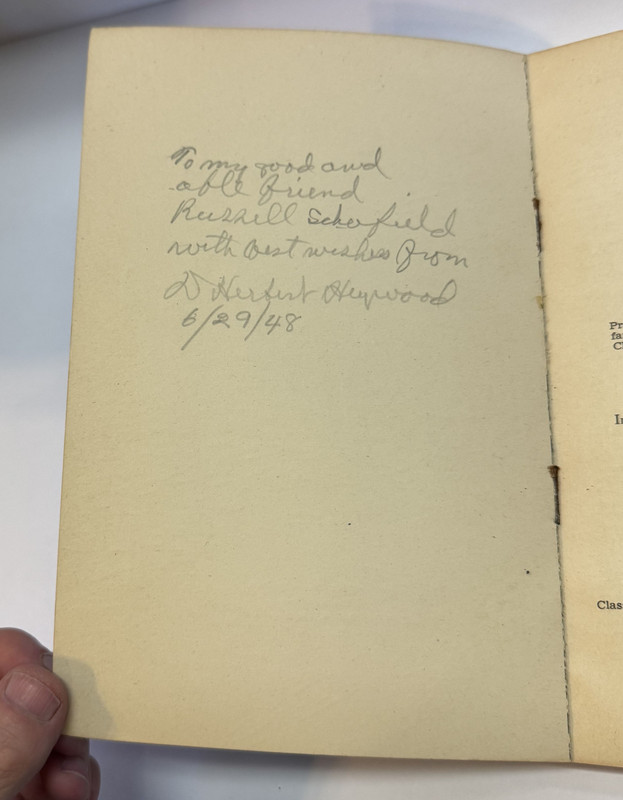 To my good and
able friend
Russell Schofield
with best wishes from
D Herbert Heywood
6/29/48
Pr
fa
Cl
In
Clas